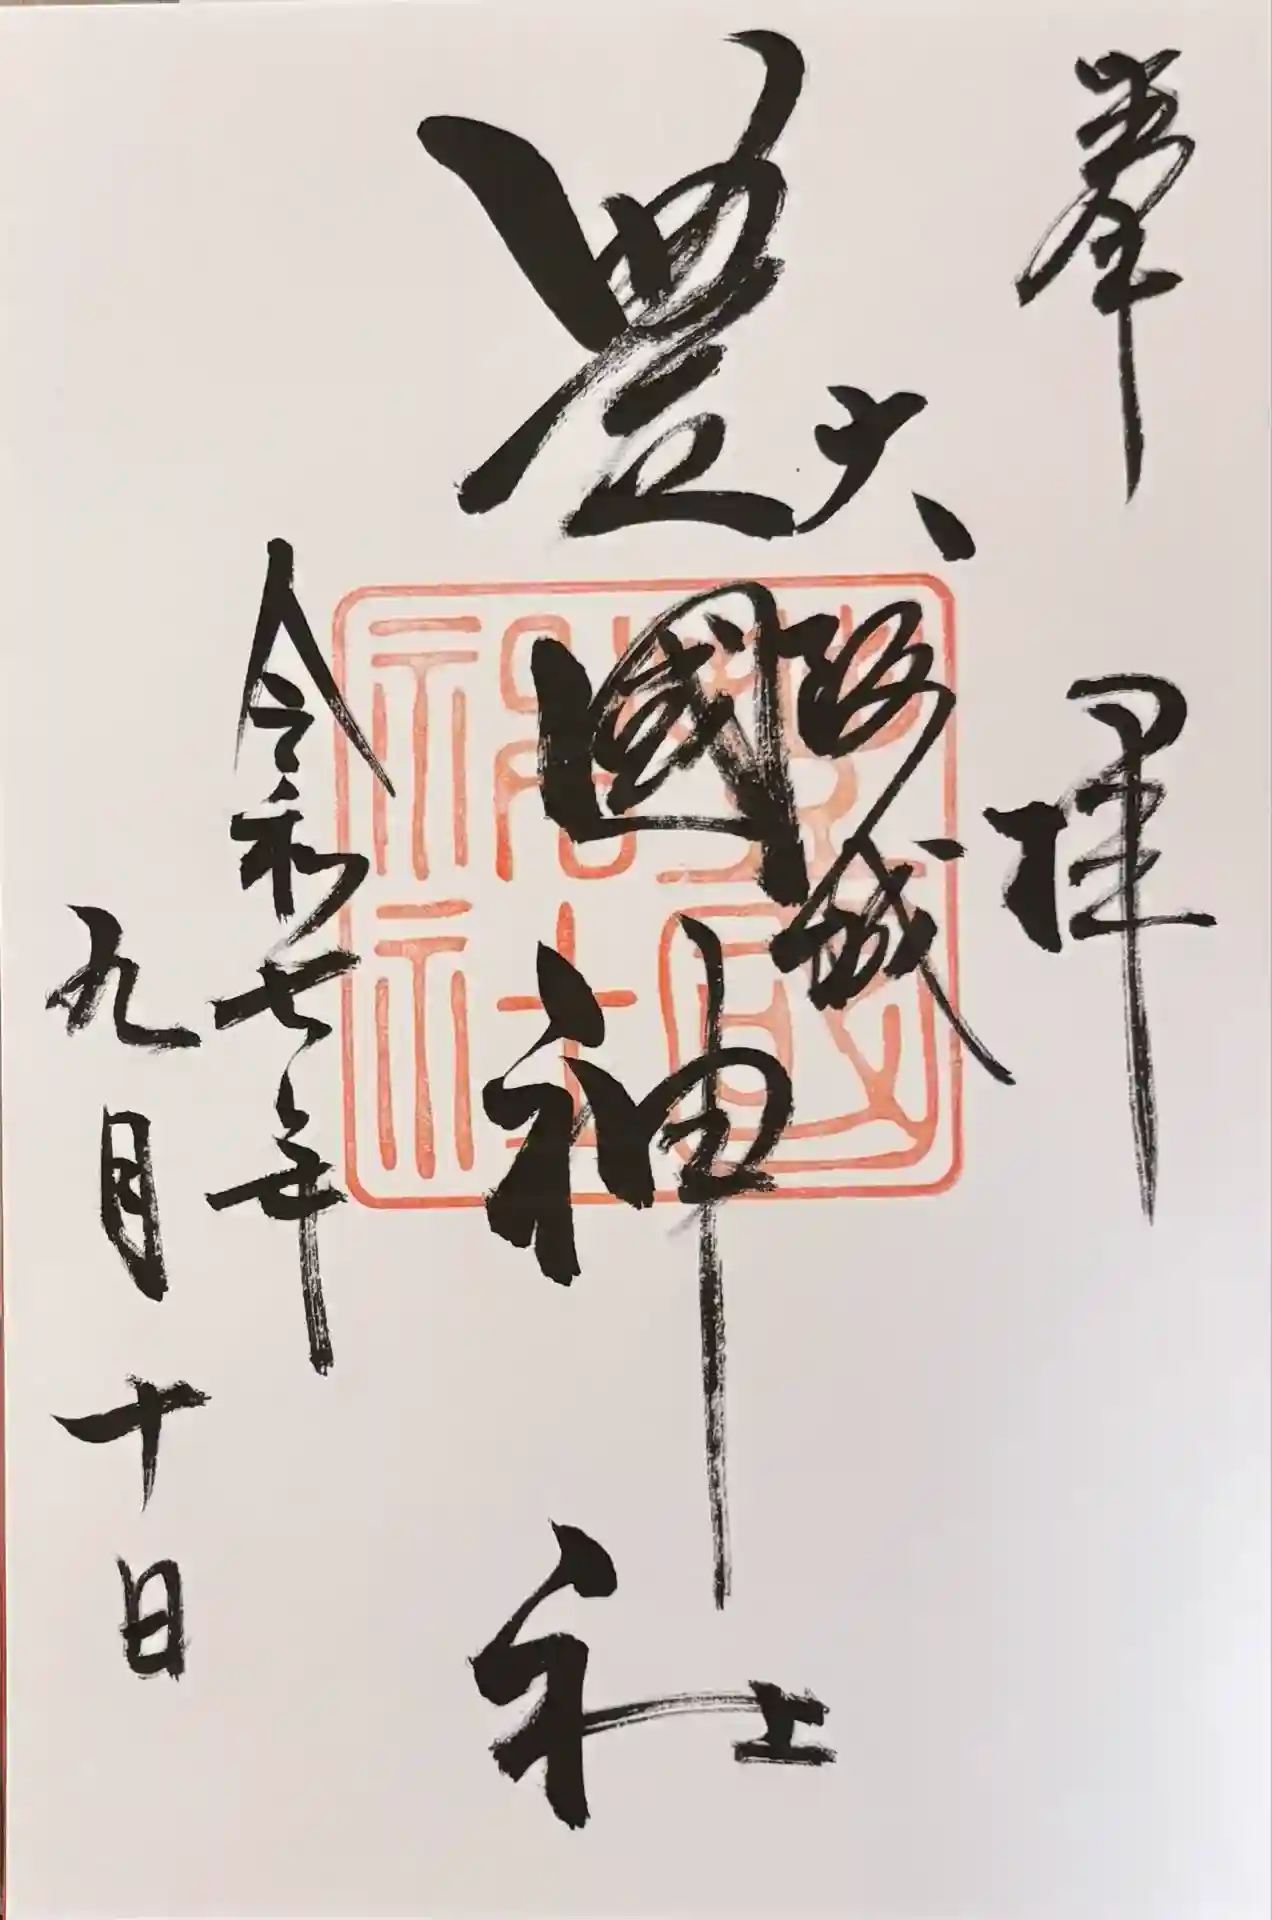 奉拝
大阪城
豊國神社
令和七年
九月十日
豊國
神社